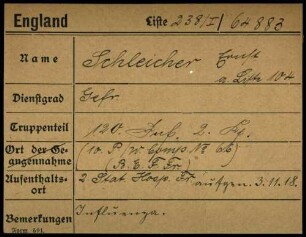 England Liste 238/I/64883
Name Schleicher Ernst
a. Liste 104
Dienstgrad Gefr.
Truppenteil 120. Inf. 2. Kp.
Ort der Gefangennahme (10. P/W Comps. № 66)
(B. E. F. Fr.)
Aufenthaltsort 2. Stat. Hosp. Fr. aufgen. 3.11.18.
Bemerkungen Influenza.
Form 681.